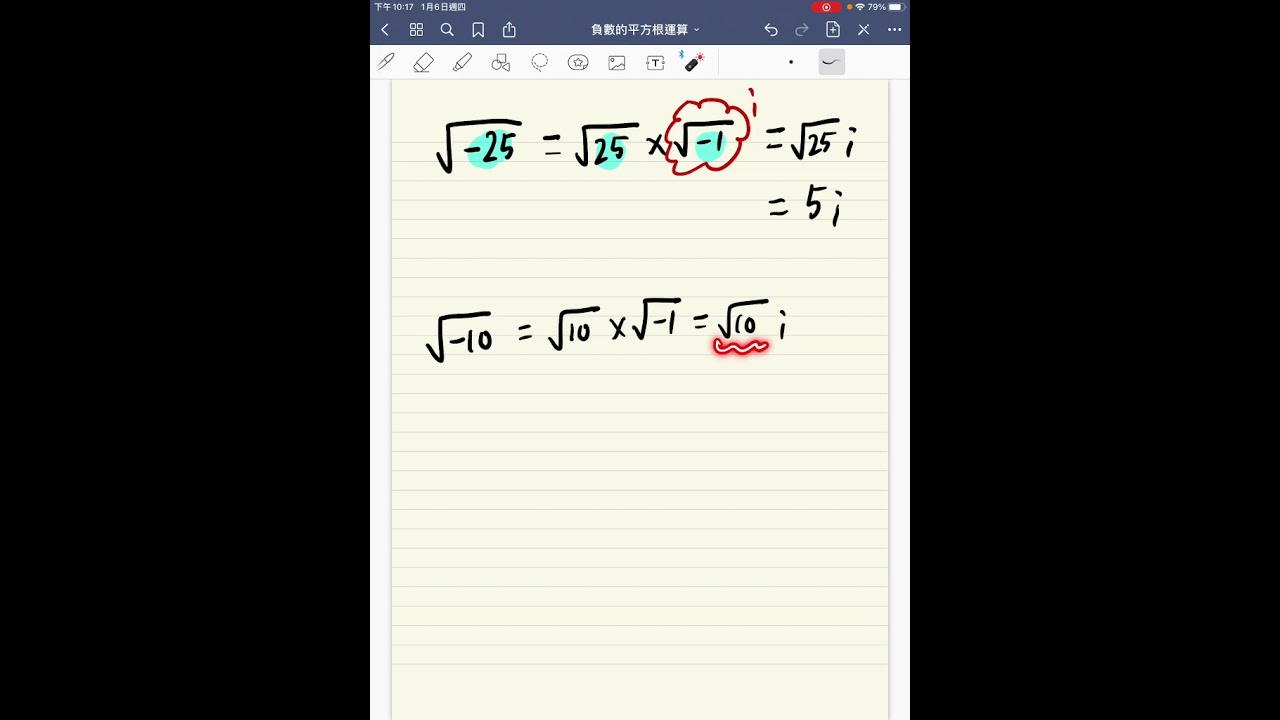 下午10:17 1月6日週四 79%
負數的平方根運算
T
i
√-25 = √25 × √-1 = √25 i
= 5i
√-10 = √10 × √-1 = √10 i